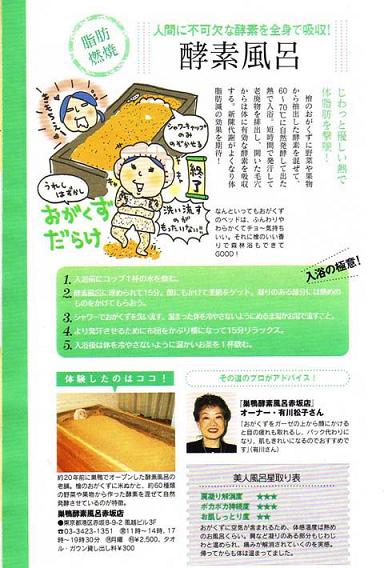 脂肪
燃焼
人間に不可欠な酵素を全身で吸収!
酵素風呂
じわっと優しい熱で
体脂肪を撃墜!
檜のおがくずに野菜や果物
から抽出した酵素を混ぜて、
60~70℃に自然発酵して出た
熱で入浴。短時間で発汗して
老廃物を排出し、開いた毛穴
からは体に有効な酵素を吸収
する。新陳代謝がよくなり体
脂肪減の効果を期待!
きもちいい
シャワーキャップのみ
のぞかせる
うれしはずかし
おがくず
だらけ
終了
洗い流すの
がもったいない!!
なんといってもおがくず
のベッドは、ふんわりや
わらかくてチョー気持ち
いい。それに檜のいい香
りで森林浴もできて
GOOD!
入浴の極意!
1. 入浴前にコップ1杯の水を飲む。
2. 酵素風呂に埋められて15分。顔にもかけて美肌をゲット。凝りのある部分には熱めの
ものをかけてもらおう。
3. シャワーでおがくずを洗い流す。温まった体を冷やさないようにぬるま湯かお湯で流すこと。
4. より発汗させるために布団をかぶり横になって15分リラックス。
5. 入浴後は体を冷やさないように温かいお茶を1杯飲む。
体験したのはココ!
約20年前に巣鴨でオープンした酵素風呂の
老舗。檜のおがくずに米ぬかと、約60種類
の野菜や果物から作った酵素を混ぜて自然
発酵させているのが特徴。
巣鴨酵素風呂赤坂店
●東京都港区赤坂8-9-2 風越ビル3F
☎03-3423-1351 11~14時、17
~19時30分 月曜 ¥2,500、タオ
ル・ガウン貸し出し料¥300
その道のプロがアドバイス!
『巣鴨酵素風呂赤坂店』
オーナー・有川松子さん
「おがくずをガーゼの上から顔にかける
と目の疲れも取れるし、パック代わりに
なり、肌もきれいになるのでおすすめで
す」(有川さん)
美人風呂星取り表
肩凝り解消度 ★★★
ポカポカ持続度 ★★★
お肌しっとり度 ★★
おがくずに空気が含まれるため、体感温度は熱め
のお風呂くらい。肩など凝りのある部分もじわじ
わと温められ、痛みが解消されていくのを実感。
帰ってからも体は温まってました。